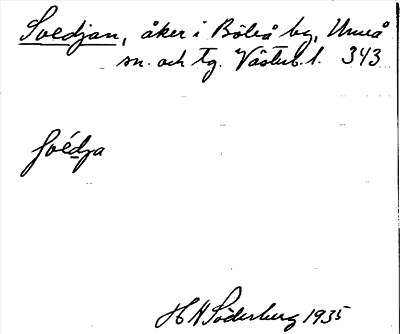 Svedjan, åker i Böleå by, Umeå
sn. och tg. Västerb. l. 343
H A Söderberg 1935